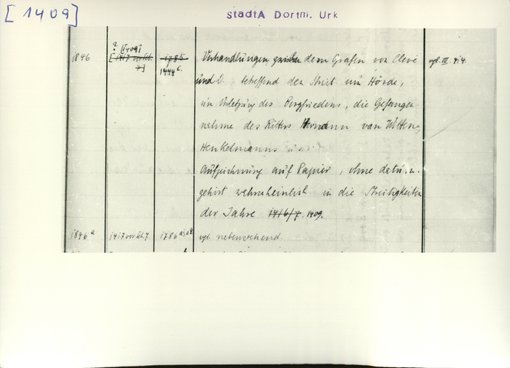 [1409]
StadtA Dortm. Urk
1846
? [1409]
1444 c.
Verhandlungen zwischen dem Grafen von Cleve
und D. betreffend den Streit um Hörde,
die Verletzung des Burgfriedens, die Gefangen
nahme des Ritters Hermann von Witten-
Henkelmann u.s.
Aufzeichnung auf Papier, ohne datu,
gehört wahrscheinlich in die Streitigkeiten
der Jahre 1416/7. 1409.
1846 a
1786
vgl. nebenstehend.